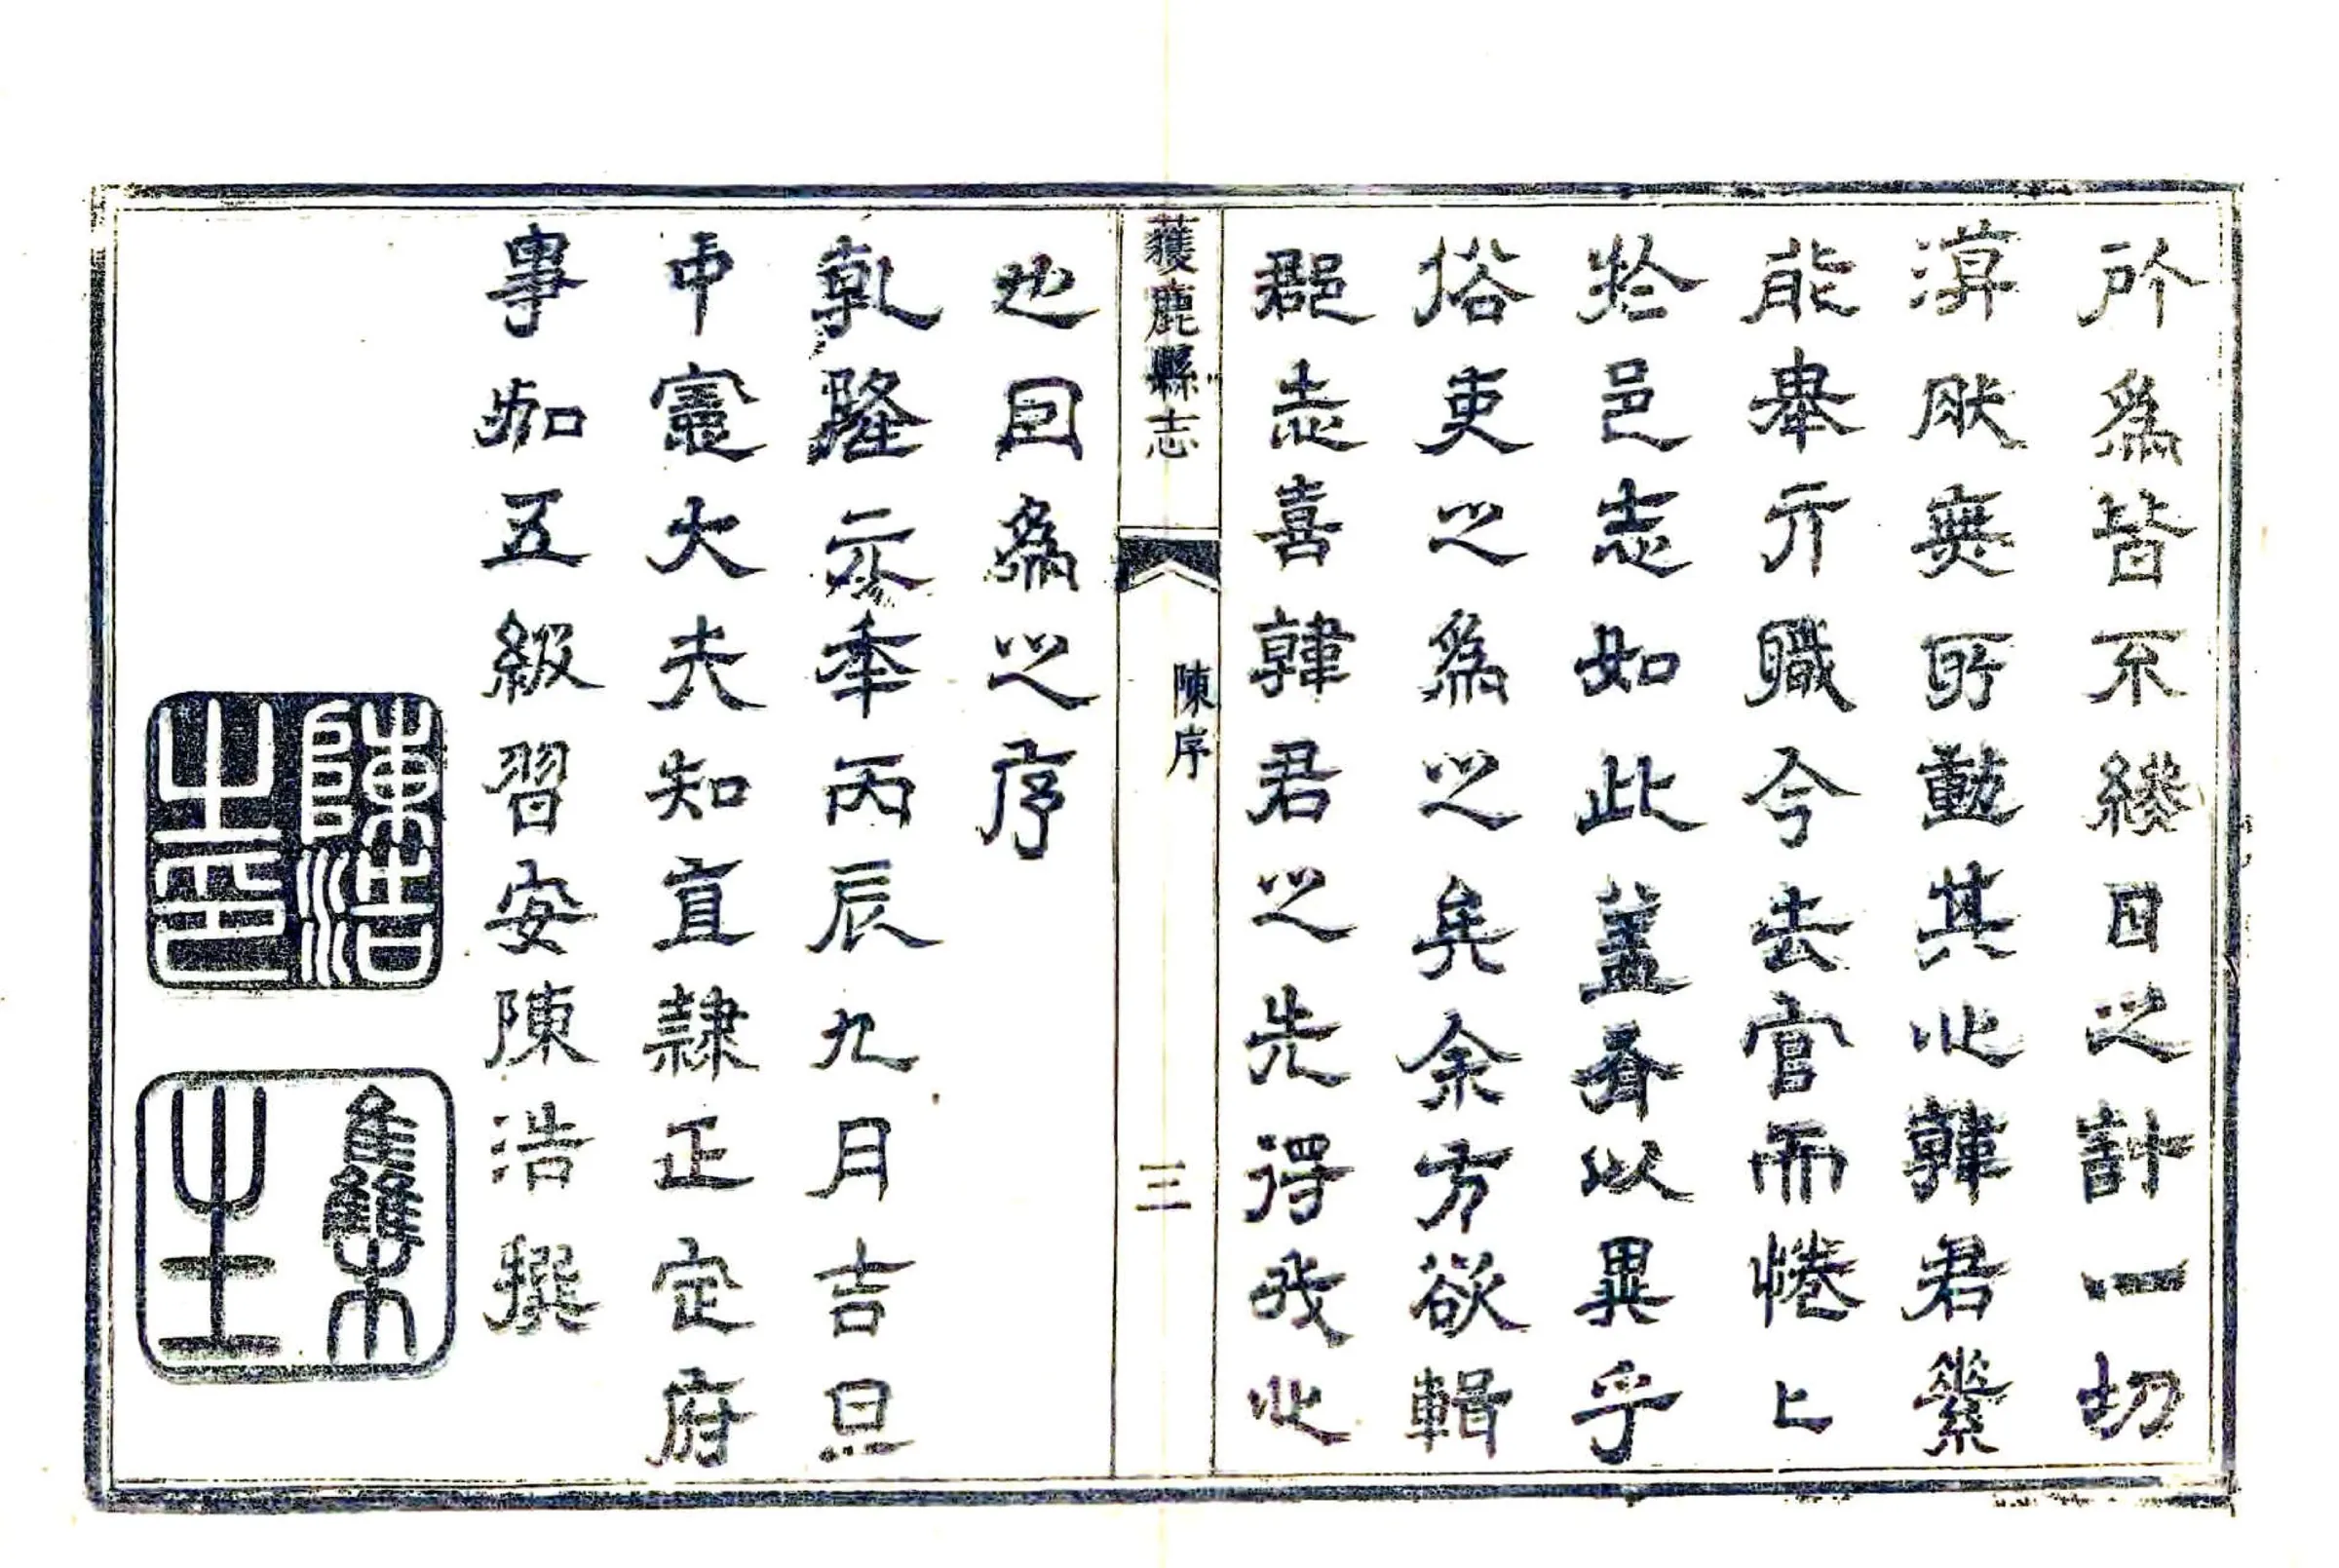 所為皆不終日之計一切
漠然無所動其心韓君素
能舉亓職今去官而惓〻
於邑志如此蓋有以異乎
俗吏之為之矣余方欲輯
郡志喜韓君之先得我心
獲鹿縣志
陳序
三
也因為之序
乾隆元年丙辰九月吉旦
中憲大夫知直隸正定府
事加五級習安陳浩撰
陳浩之印
集生